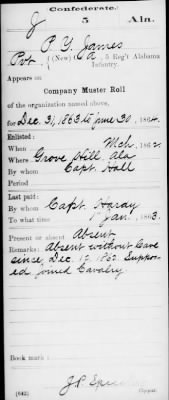 Confederate.
J 5 Ala.
P. Y. James
Pvt. (New) Co. , 5 Reg't Alabama
Infantry.
Appears on
Company Muster Roll
of the organization named above,
for Dec. 31, 1863 to June 30, 1864.
Enlisted:
When Mch , 186
Where Grove Hill, Ala
By whom Capt. Hall
Period
Last paid:
By whom Capt.
To what time 1 Jan. , 1863.
Present or absent Absent
Remarks: Absent without leave
since Dec. 186 . Suppos-
ed joined Cavalry
Book mark:
(642) Copyist.